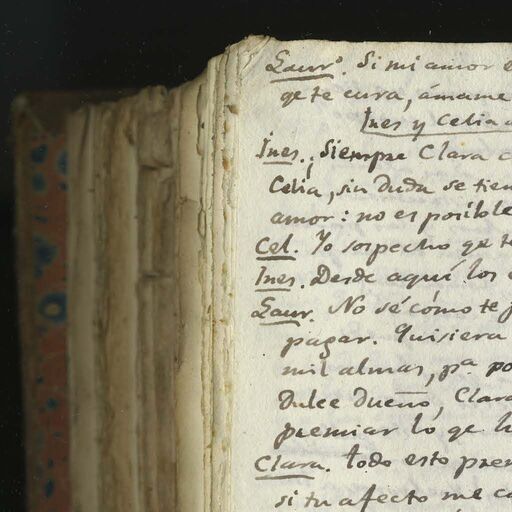 Laur.º Si mi amor
qe te cura, ámame
Ines y Celia
Ines. ¿Siempre Clara
Celia, sin duda se tien
amor: no es posible
Cel. Yo sospecho qe t
Ines. Desde aquí los
Laur. No sé cómo te
pagar. Quisiera
mil almas, pa. po
Dulce dueño, Clara
premiar lo qe h
Clara. Todo esto pre
si tu afecto me c